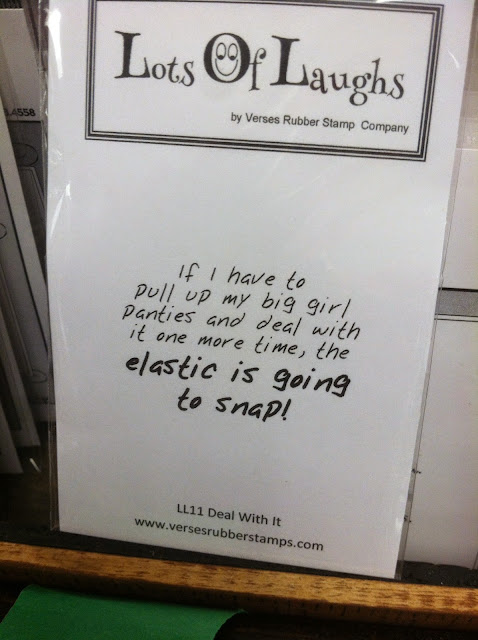 4558
Lots Of Laughs
by Verses Rubber Stamp Company
If I have to
pull up my big girl
panties and deal with
it one more time, the
elastic is going
to snap!
LL11 Deal With It
www.versesrubberstamps.com